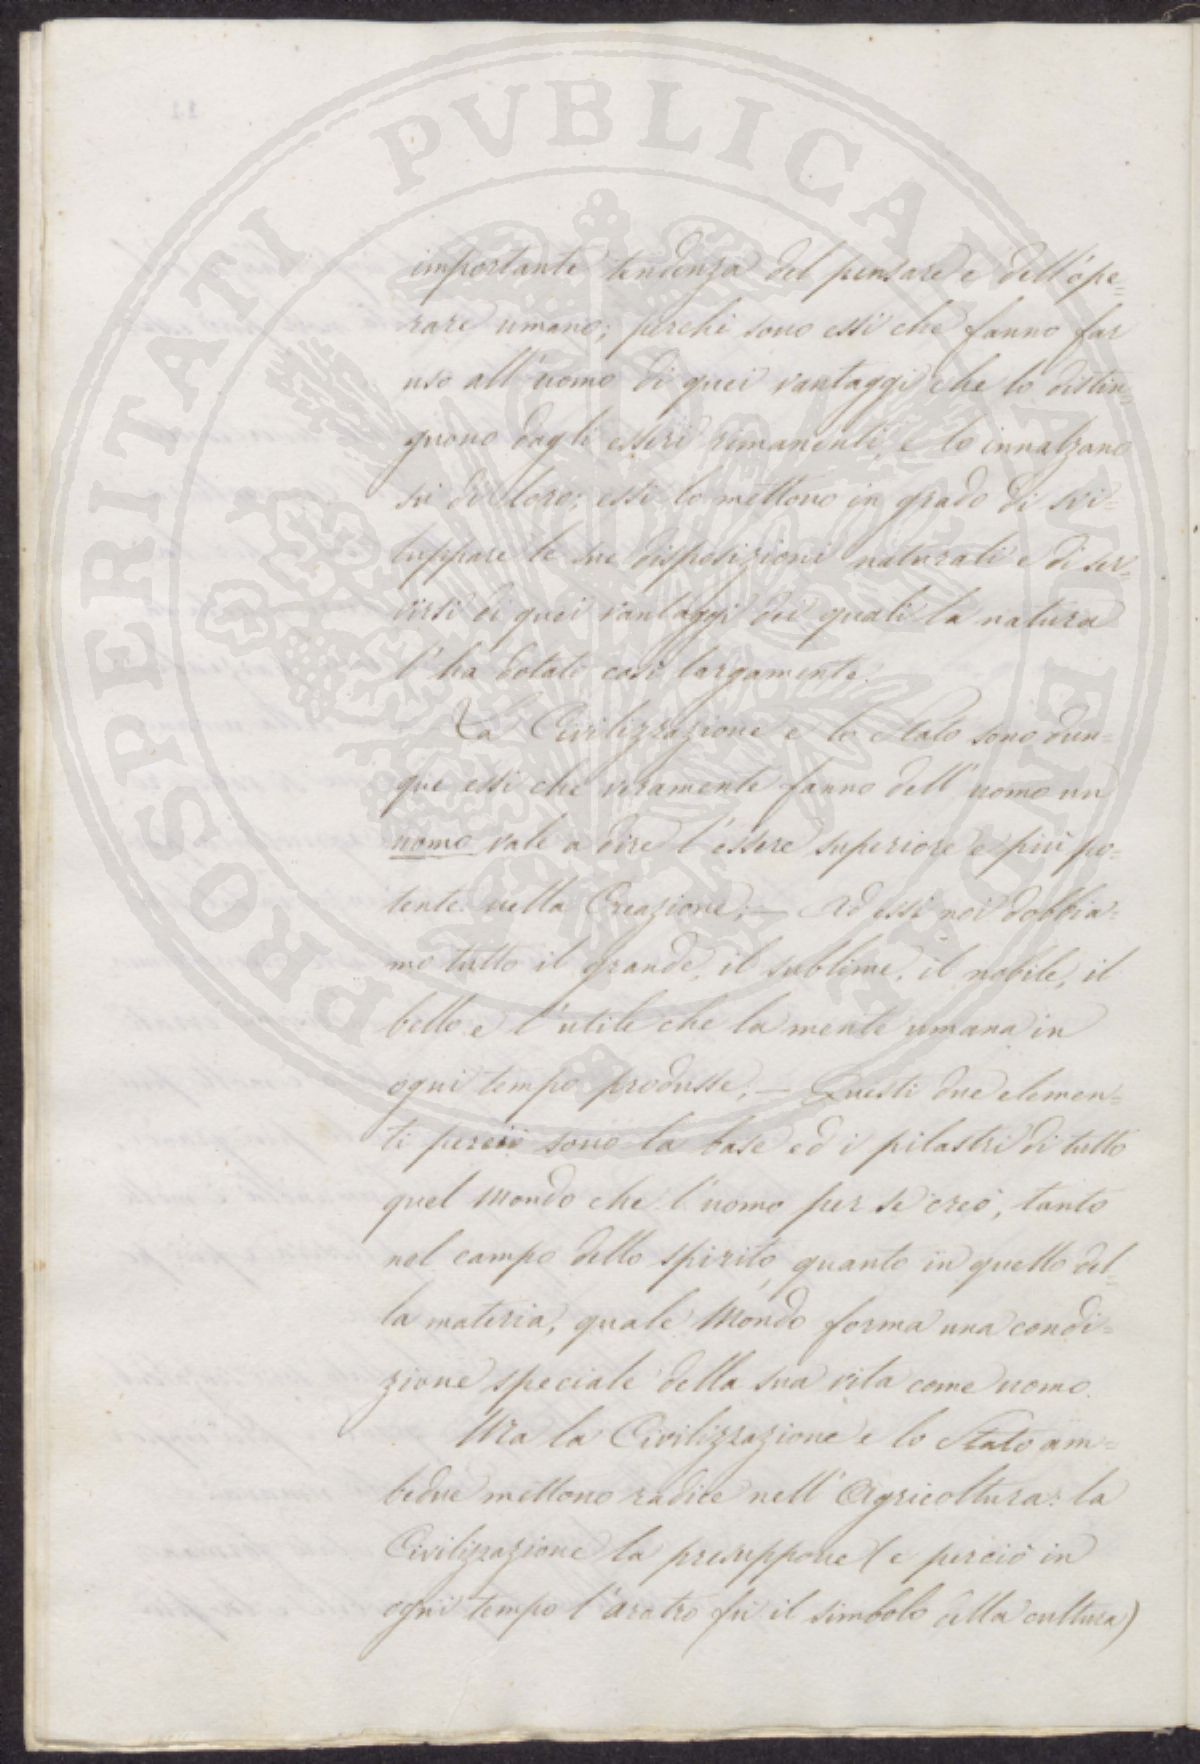 PROSPERITATI PVBLICAE AVGENDAE
importante tendenza del pensare e dell'ope=
rare umano; perchè sono essi che fanno far
uso all'uomo di quei vantaggi che lo distin=
guono dagli esseri rimanenti, e lo innalzano
sù di loro; essi lo mettono in grado di svi=
luppare le sue disposizioni naturali e di ser=
virsi di quei vantaggi dei quali la natura
l'ha dotati così largamente.
La Civilizzazione e lo Stato sono dun=
que essi che veramente fanno dell'uomo un
uomo vale a dire l'essere superiore e più po=
tente nella Creazione; — Ad essi noi dobbia=
mo tutto il grande, il sublime, il nobile, il
bello e l'utile che la mente umana in
ogni tempo produsse; — Questi due elemen=
ti perciò sono la base ed i pilastri di tutto
quel Mondo che l'uomo per se creò, tanto
nel campo dello spirito, quanto in quello del=
la materia, quale Mondo forma una condi=
zione speciale della sua vita come uomo.
Ma la Civilizzazione e lo Stato am=
bedue mettono radice nell'Agricoltura: la
Civilizzazione la presuppone (e perciò in
ogni tempo l'aratro fù il simbolo della cultura)